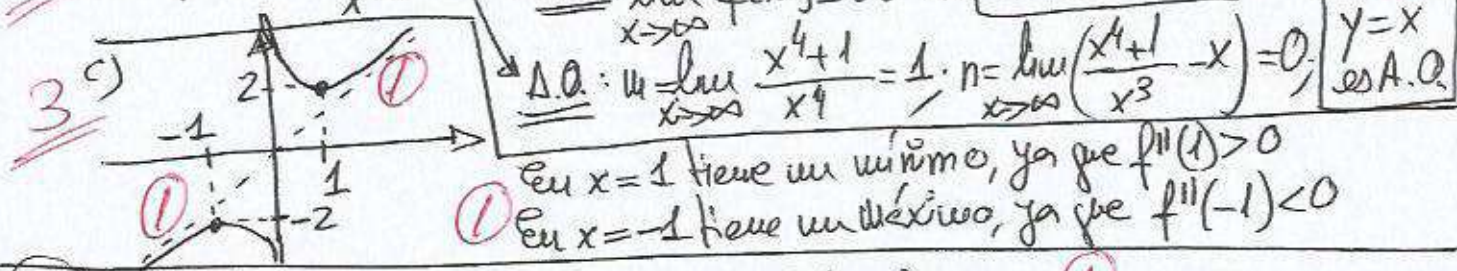 x→∞
3 c)
2
①
A.O.: m = lim x→∞ (x⁴+1)/x⁴ = 1; n = lim x→∞ ((x⁴+1)/x³ - x) = 0;
y = x
es A.O.
-1
1
①
-2
En x=1 tiene un mínimo, ya que f''(1)>0
① En x=-1 tiene un máximo, ya que f''(-1)<0